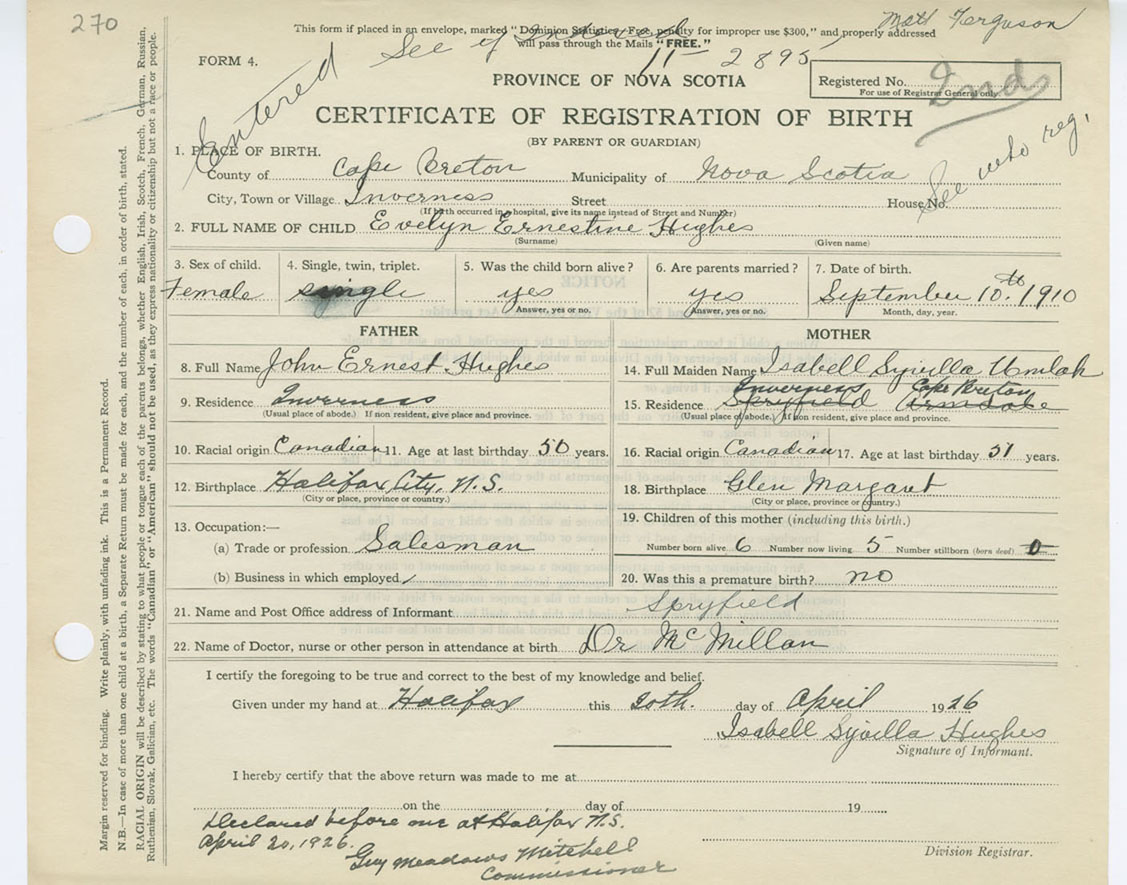 270
This form if placed in an envelope, marked "Dominion Statistics—Free, penalty for improper use $300," and properly addressed
will pass through the Mails "FREE."
Matt Ferguson
See if
11 - 2895
Entered
FORM 4.
PROVINCE OF NOVA SCOTIA
Registered No.
For use of Registrar General only
CERTIFICATE OF REGISTRATION OF BIRTH
(BY PARENT OR GUARDIAN)
See who reg.
1. PLACE OF BIRTH.
County of Cape Breton Municipality of Nova Scotia
City, Town or Village Inverness Street House No.
(If birth occurred in a hospital, give its name instead of Street and Number)
2. FULL NAME OF CHILD Evelyn Ernestine Hughes
(Surname) (Given name)
3. Sex of child. 4. Single, twin, triplet. 5. Was the child born alive? 6. Are parents married? 7. Date of birth.
Female single yes yes September 10th. 1910
Answer, yes or no. Answer, yes or no. Month, day, year.
FATHER
8. Full Name John Ernest Hughes
9. Residence Inverness
(Usual place of abode.) If non resident, give place and province.
10. Racial origin Canadian 11. Age at last birthday 50 years.
12. Birthplace Halifax City, N.S.
(City or place, province or country.)
13. Occupation:—
(a) Trade or profession Salesman
(b) Business in which employed
MOTHER
14. Full Maiden Name Isabell Syvilla Umlah
Inverness Cape Breton
15. Residence Spryfield
(Usual place of abode.) If non resident, give place and province.
16. Racial origin Canadian 17. Age at last birthday 51 years.
18. Birthplace Glen Margaret
(City or place, province or country.)
19. Children of this mother (including this birth.)
Number born alive 6 Number now living 5 Number stillborn (born dead) 0
20. Was this a premature birth? no
21. Name and Post Office address of Informant Spryfield
22. Name of Doctor, nurse or other person in attendance at birth Dr McMillan
I certify the foregoing to be true and correct to the best of my knowledge and belief.
Given under my hand at Halifax this 20th. day of April 1926
Isabell Syvilla Hughes
Signature of Informant.
I hereby certify that the above return was made to me at
on the day of 19
Declared before me at Halifax N.S.
April 20, 1926.
Guy Meadows Mitchell
Commissioner
Division Registrar.
Margin reserved for binding. Write plainly, with unfading ink. This is a Permanent Record.
N.B.—In case of more than one child at a birth, a Separate Return must be made for each, and the number of each, in order of birth, stated.
RACIAL ORIGIN will be described by stating to what people or tongue each of the parents belongs, whether English, Irish, Scotch, French, German, Russian,
Ruthenian, Slovak, Galician, etc. The words "Canadian" or "American" should not be used, as they express nationality or citizenship but not a race or people.